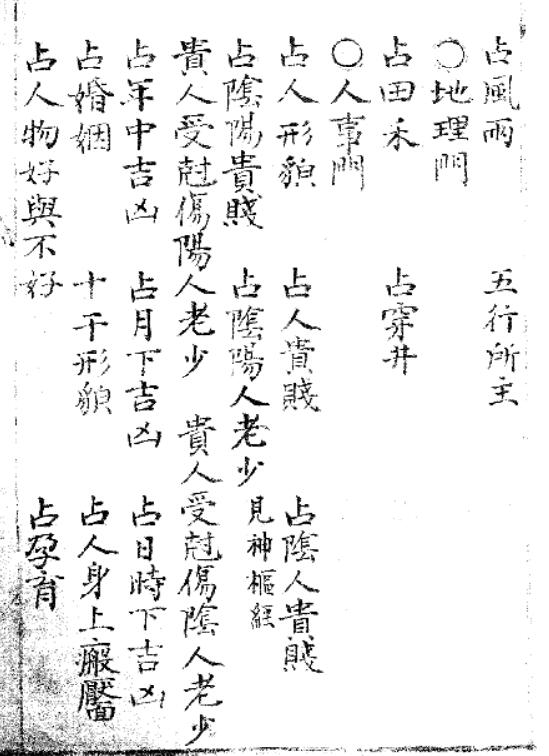 占風雨 五行所主
〇地理門
占田禾 占穿井
〇人事門
占人形貌 占人貴賤 占陰人貴賤
占陰陽貴賤 占陰陽人老少 見神樞經
貴人受尅傷陽人老少 貴人受尅傷陰人老少
占年中吉凶 占月下吉凶 占日時下吉凶
占婚姻 十干形貌 占人身上瘢靨
占人物好與不好 占孕育